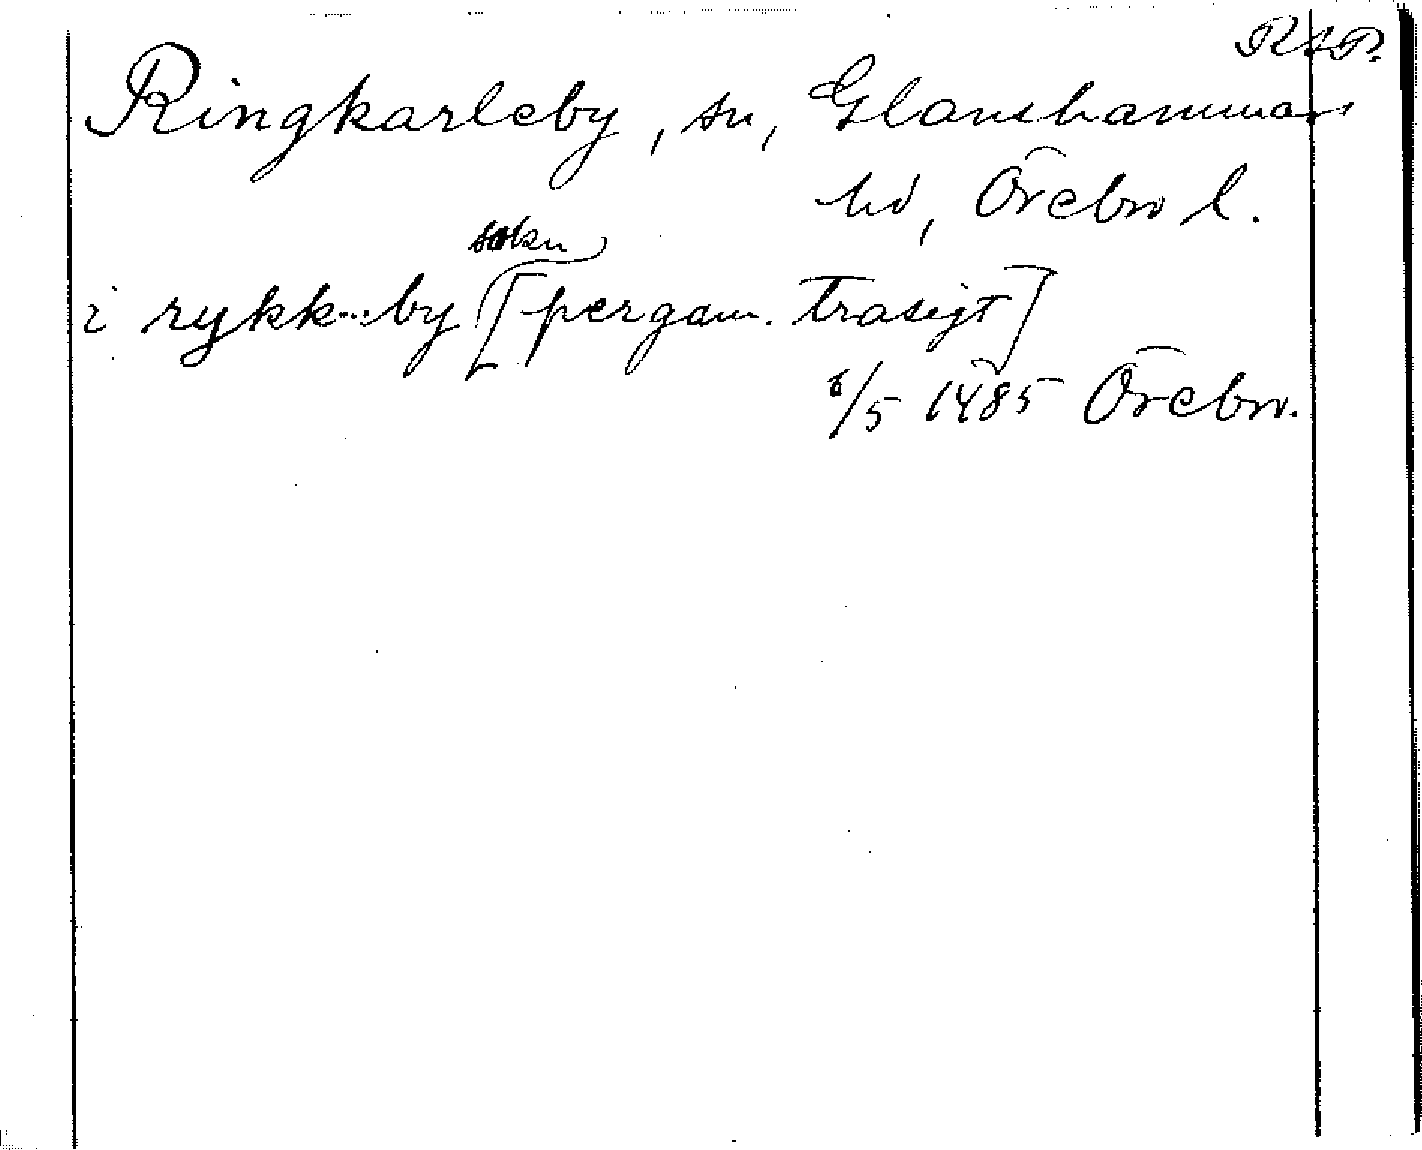 RAP.
Ringkarleby, sn, Glanshammars
hd, Örebro l.
sokn
i rykk...by [pergam. trasigt]
6/5 1485 Örebro.